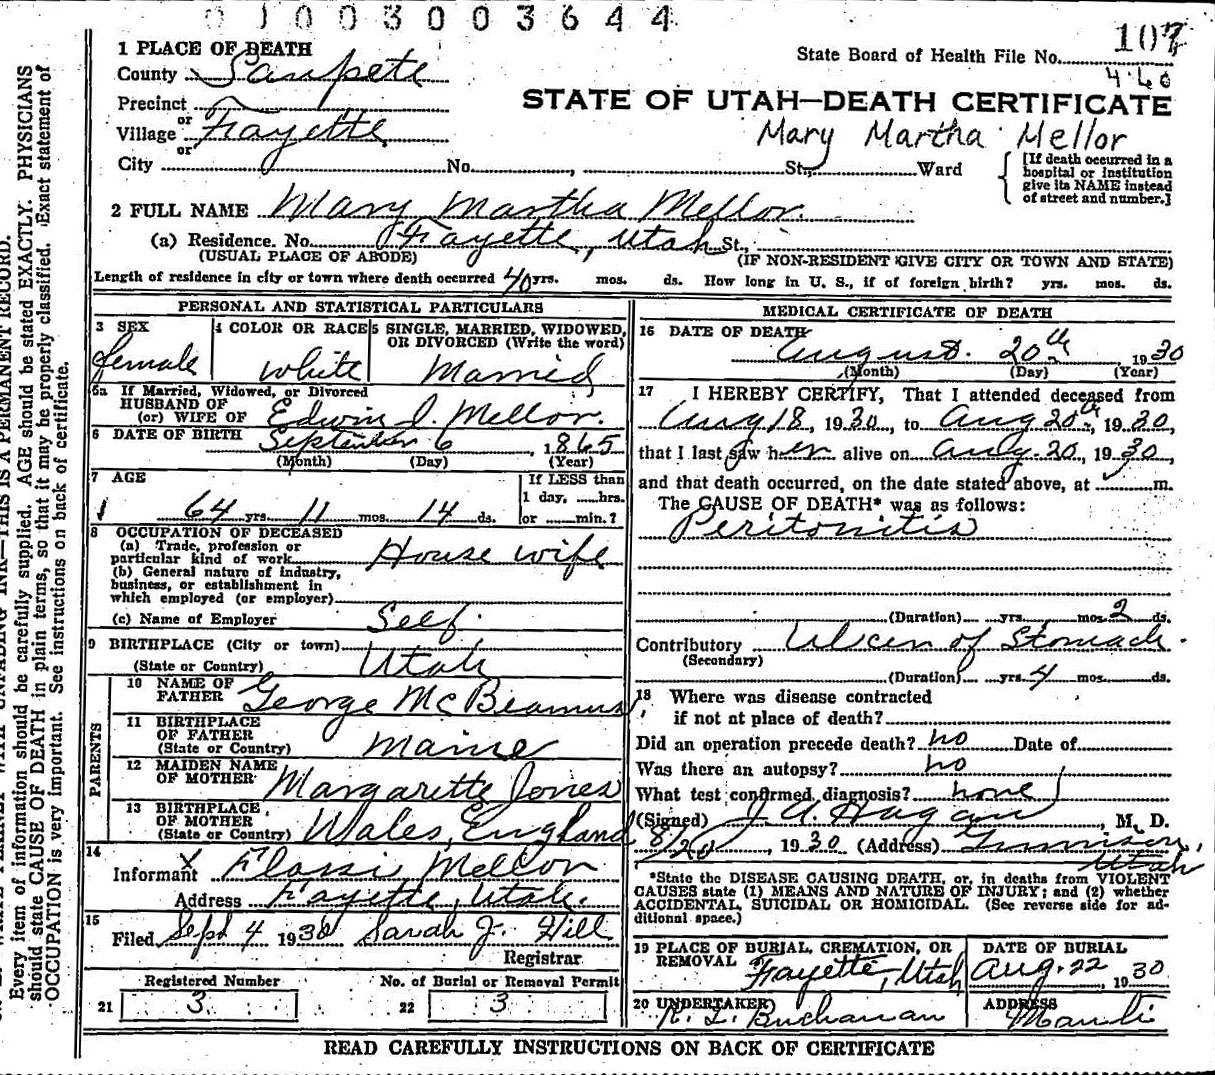 0 1 0 0 3 0 0 3 6 4 4
State Board of Health File No. 107
4-60
1 PLACE OF DEATH
County Sanpete
Precinct
or
Village Fayette
or
City No. , St., Ward
STATE OF UTAH—DEATH CERTIFICATE
Mary Martha Mellor
[If death occurred in a
hospital or institution
give its NAME instead
of street and number.]
2 FULL NAME Mary Martha Mellor.
(a) Residence. No. Fayette, Utah St.,
(USUAL PLACE OF ABODE) (IF NON-RESIDENT GIVE CITY OR TOWN AND STATE)
Length of residence in city or town where death occurred 40 yrs. mos. ds. How long in U. S., if of foreign birth? yrs. mos. ds.
PERSONAL AND STATISTICAL PARTICULARS
3 SEX
female
4 COLOR OR RACE
white
5 SINGLE, MARRIED, WIDOWED,
OR DIVORCED (Write the word)
Married
5a If Married, Widowed, or Divorced
HUSBAND OF
(or) WIFE OF Edwin I. Mellor.
6 DATE OF BIRTH September 6, 1865
(Month) (Day) (Year)
7 AGE
64 yrs. 11 mos. 14 ds.
If LESS than
1 day, hrs.
or min.?
8 OCCUPATION OF DECEASED
(a) Trade, profession or
particular kind of work House wife
(b) General nature of industry,
business, or establishment in
which employed (or employer)
(c) Name of Employer Self.
9 BIRTHPLACE (City or town)
(State or Country) Utah
PARENTS
10 NAME OF
FATHER George Mc Beamus
11 BIRTHPLACE
OF FATHER
(State or Country) Maine
12 MAIDEN NAME
OF MOTHER Margarette Jones
13 BIRTHPLACE
OF MOTHER
(State or Country) Wales, England
14
Informant x Flossi Mellor
Address Fayette, Utah.
15
Filed Sept 4 1930 Sarah J. Hill
Registrar
Registered Number
21 3
No. of Burial or Removal Permit
22 3
MEDICAL CERTIFICATE OF DEATH
16 DATE OF DEATH
August. 20th, 1930
(Month) (Day) (Year)
17 I HEREBY CERTIFY, That I attended deceased from
Aug 18, 1930, to Aug 20th, 1930,
that I last saw her alive on Aug. 20, 1930,
and that death occurred, on the date stated above, at m.
The CAUSE OF DEATH* was as follows:
Peritonitis
(Duration) yrs. mos. 2 ds.
Contributory Ulcer of Stomach.
(Secondary)
(Duration) yrs. 4 mos. ds.
18 Where was disease contracted
if not at place of death?
Did an operation precede death? no Date of
Was there an autopsy? no
What test confirmed diagnosis? none
(Signed) J. A. Hagan, M. D.
8/20, 1930 (Address) Gunnison,
Utah
*State the DISEASE CAUSING DEATH, or, in deaths from VIOLENT
CAUSES state (1) MEANS AND NATURE OF INJURY; and (2) whether
ACCIDENTAL, SUICIDAL OR HOMICIDAL. (See reverse side for ad-
ditional space.)
19 PLACE OF BURIAL, CREMATION, OR
REMOVAL
Fayette, Utah
DATE OF BURIAL
Aug. 22, 1930
20 UNDERTAKER
Buchanan
ADDRESS
Manti
READ CAREFULLY INSTRUCTIONS ON BACK OF CERTIFICATE
Every item of information should be carefully supplied. AGE should be stated EXACTLY. PHYSICIANS
should state CAUSE OF DEATH in plain terms, so that it may be properly classified. Exact statement of
OCCUPATION is very important. See instructions on back of certificate.
INK—THIS IS A PERMANENT RECORD.